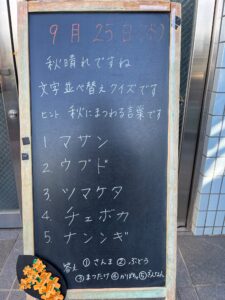 9月25日(水)
秋晴れですね
文字並べ替えクイズです
ヒント 秋にまつわる言葉です
1. マサン
2. ウブド
3. ツマケタ
4. チェボカ
5. ナンンギ
答え ①さんま ②ぶどう
③まつたけ ④かぼちゃ ⑤ぎんなん